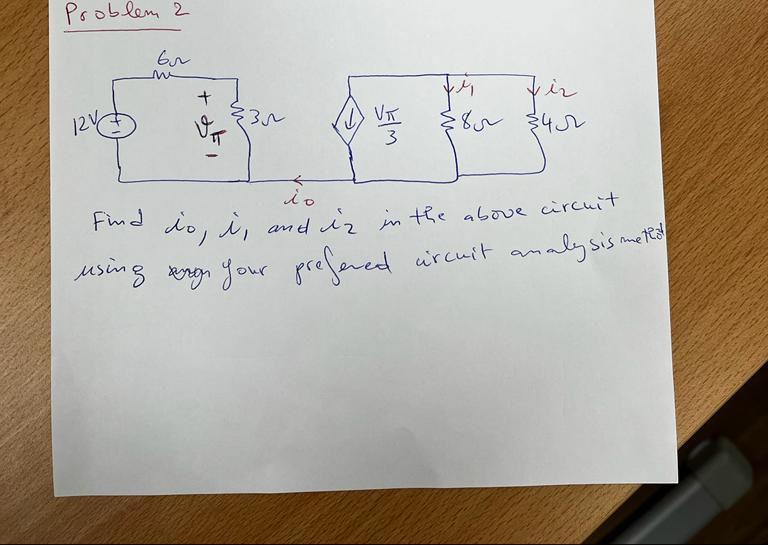 Problem 2
6Ω
12V
+
vπ
-
3Ω
Vπ/3
i1
8Ω
i2
4Ω
i0
Find i0, i1 and i2 in the above circuit
using your prefered circuit analysis method